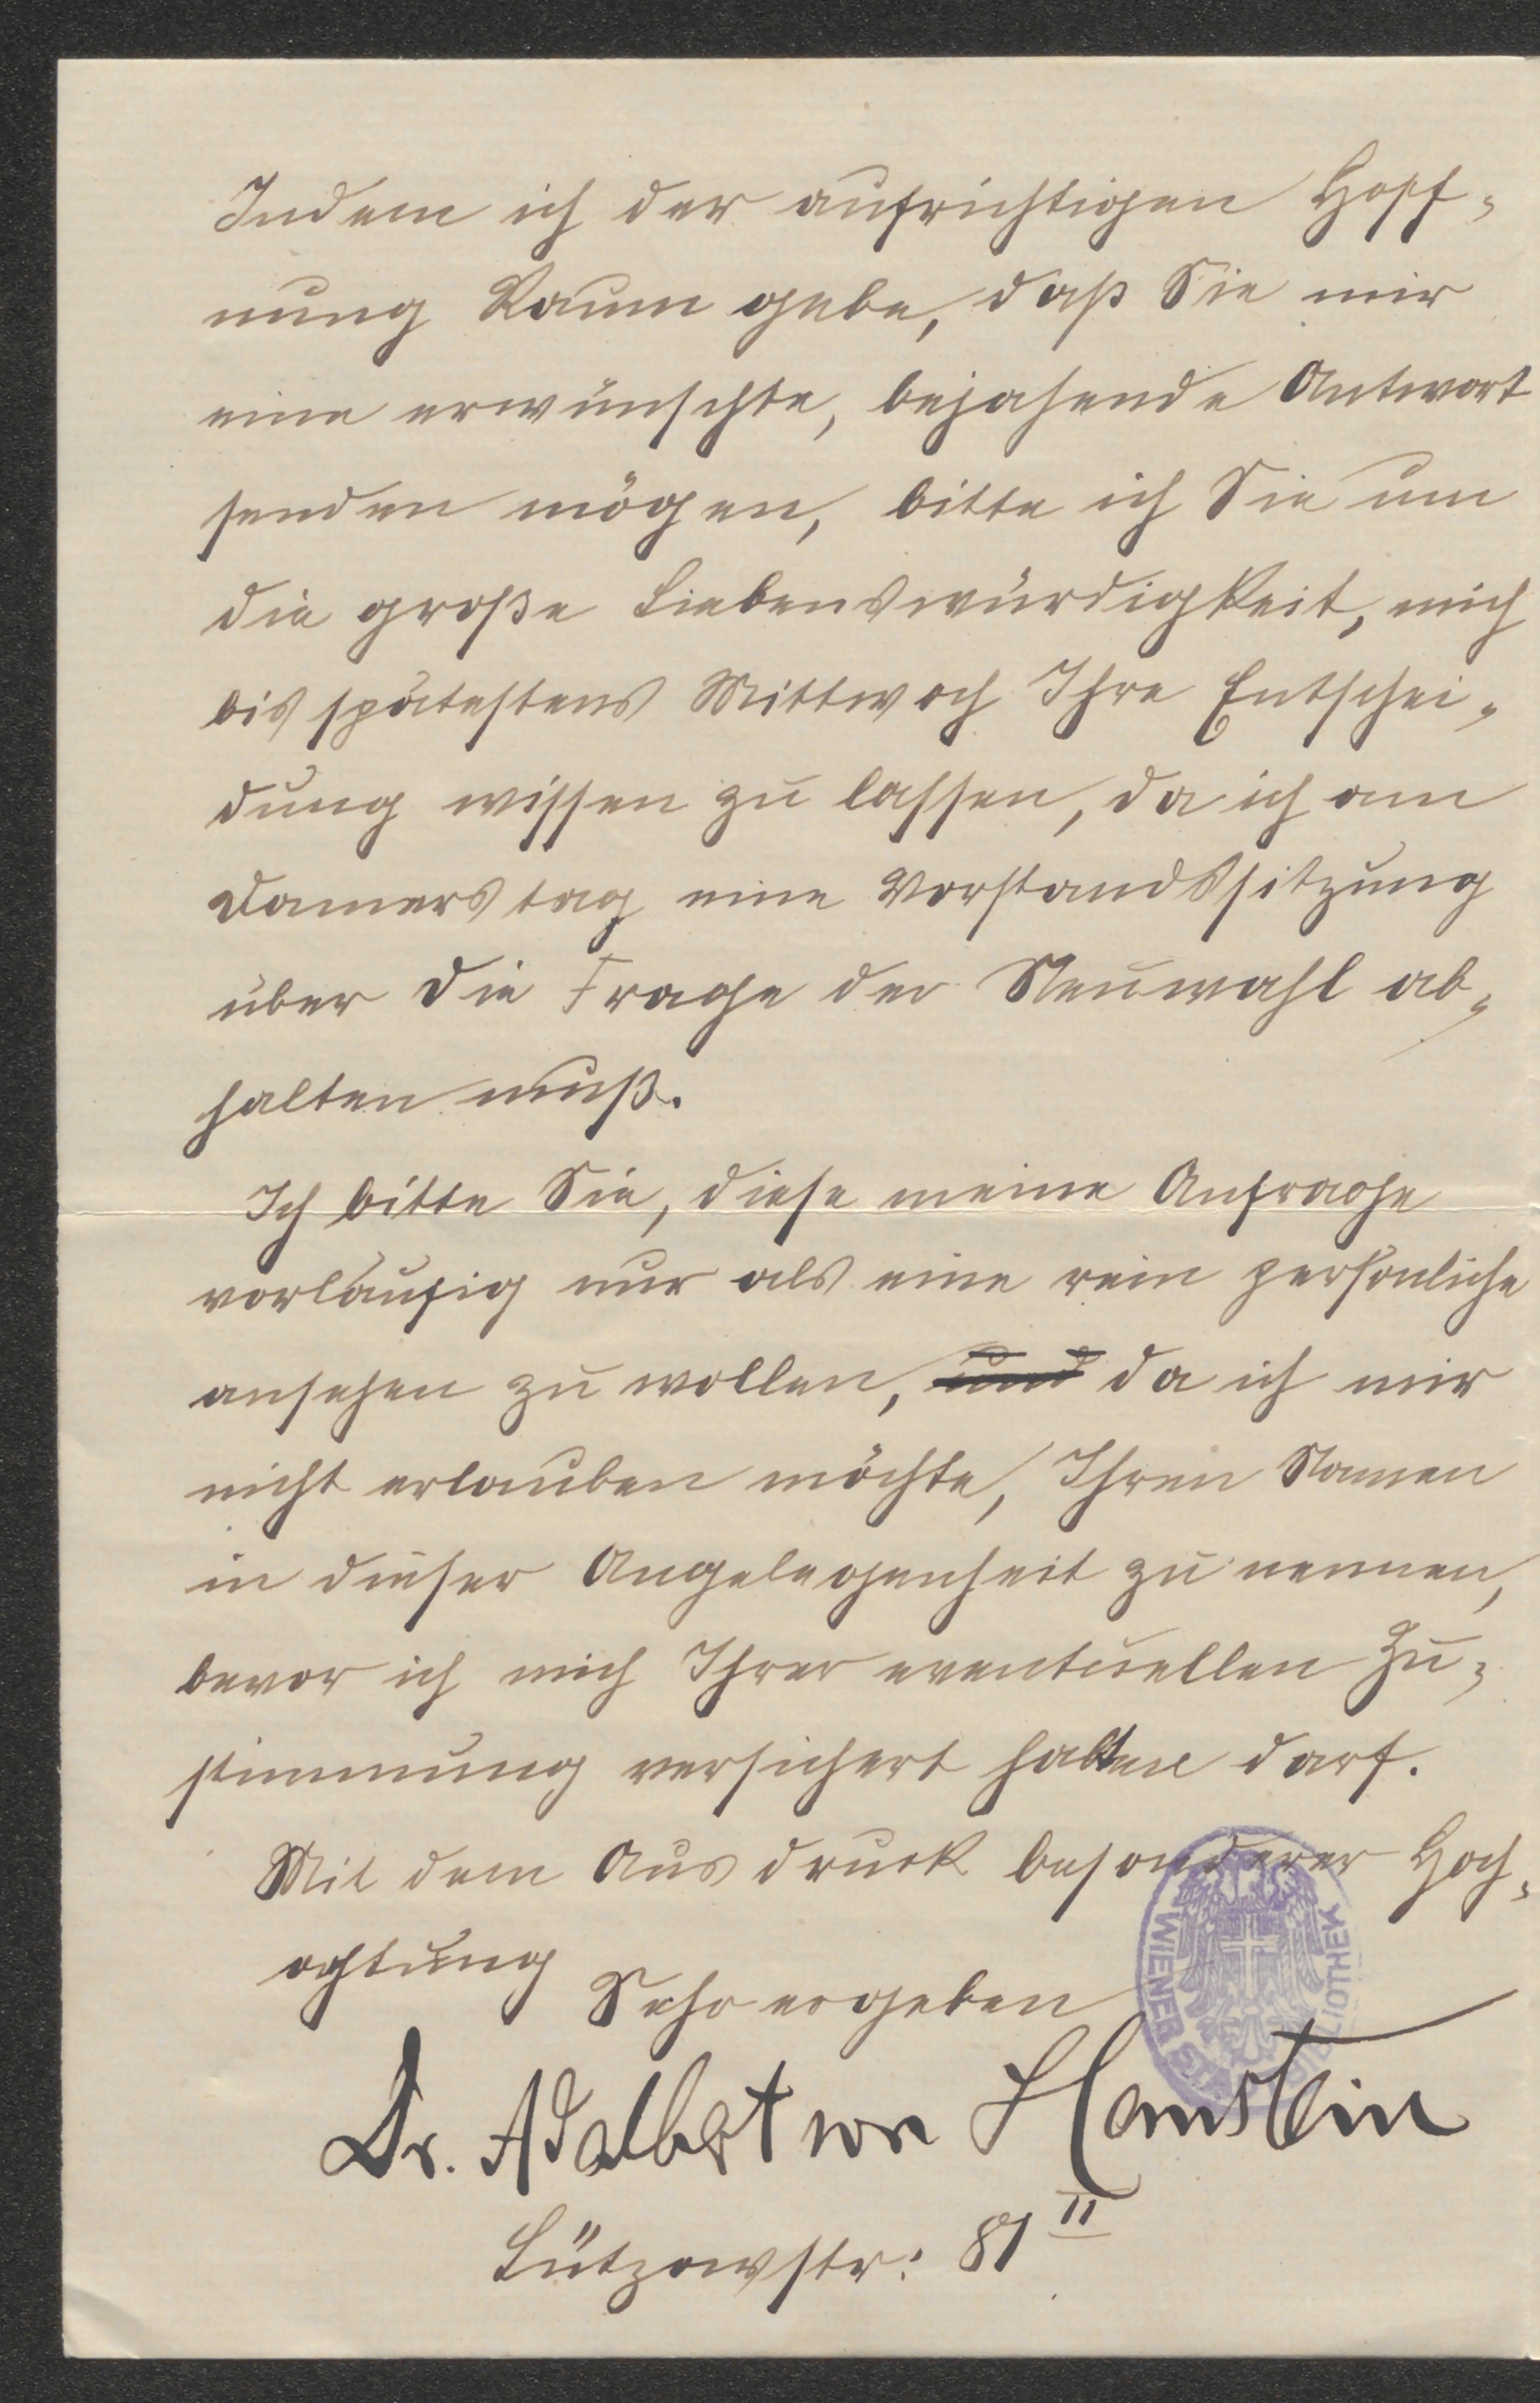 Indem ich der aufrichtigen Hoff-
nung Raum gebe, daß Sie mir
eine erwünschte, bejahende Antwort
senden mögen, bitte ich Sie um
die große Liebenswürdigkeit, mich
bis spätestens Mittwoch Ihre Entschei-
dung wissen zu lassen, da ich am
Donnerstag eine Vorstandssitzung
über die Frage der Neuwahl ab-
halten muß.
Ich bitte Sie, diese meine Anfrage
vorläufig nur als eine rein persönliche
ansehen zu wollen, und da ich mir
nicht erlauben möchte, Ihren Namen
in dieser Angelegenheit zu nennen,
bevor ich mich Ihrer eventuellen Zu-
stimmung versichert halten darf.
Mit dem Ausdruck besonderer Hoch-
achtung
Sehr ergeben
Dr. Adalbert von Hanstein
Lützowstr: 81 II
WIENER STADTBIBLIOTHEK